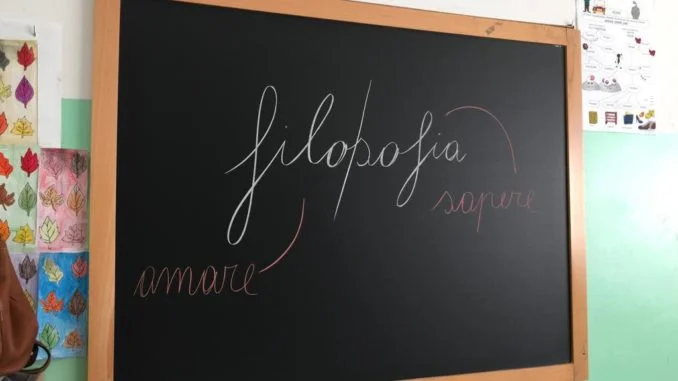 filo/sofia
sapere
amare